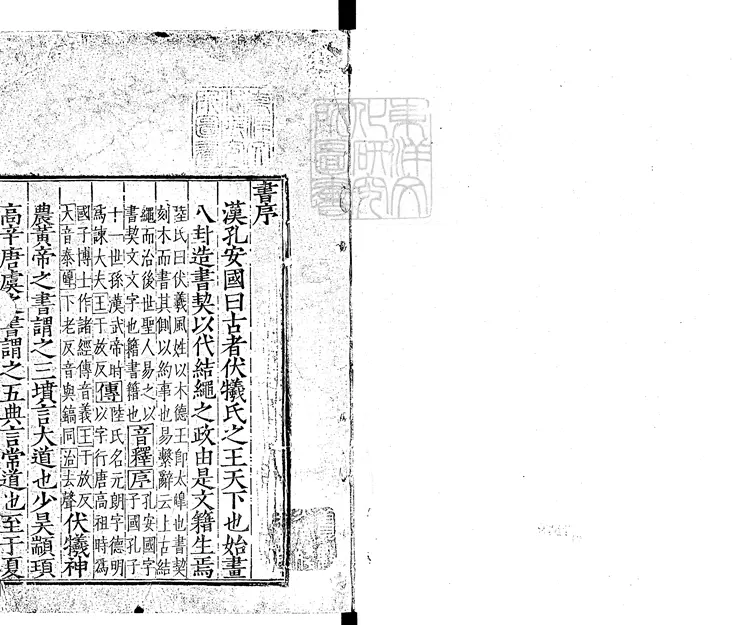 東洋文
化研究
所圖書
書序
漢孔安國曰古者伏犧氏之王天下也始畫
八卦造書契以代結繩之政由是文籍生焉
陸氏曰伏羲風姓以木德王卽太皥也書契
刻木而書其側以約事也易繫辭云上古結
繩而治後世聖人易之以
書契文文字也籍書籍也
音釋序孔安國字
子國孔子
十一世孫漢武帝時
爲諫大夫王于放反
傳陸氏名元朗字德明
以字行唐高祖時爲
國子博士作諸經傳音義王于放反
大音泰皥下老反音與鎬同治去聲
伏犧神
農黃帝之書謂之三墳言大道也少昊顓頊
高辛唐虞書謂之五典言常道也至于夏